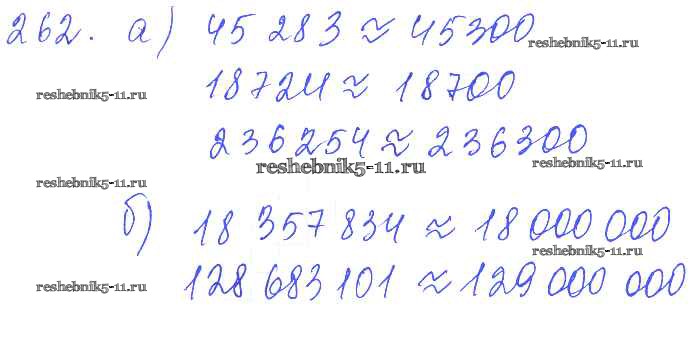 262. а) 45 283 ≈ 45300
reshebnik5-11.ru
18724 ≈ 18700
reshebnik5-11.ru
236254 ≈ 236300
reshebnik5-11.ru
reshebnik5-11.ru
reshebnik5-11.ru
б) 18 357 834 ≈ 18 000 000
reshebnik5-11.ru
128 683 101 ≈ 129 000 000
reshebnik5-11.ru